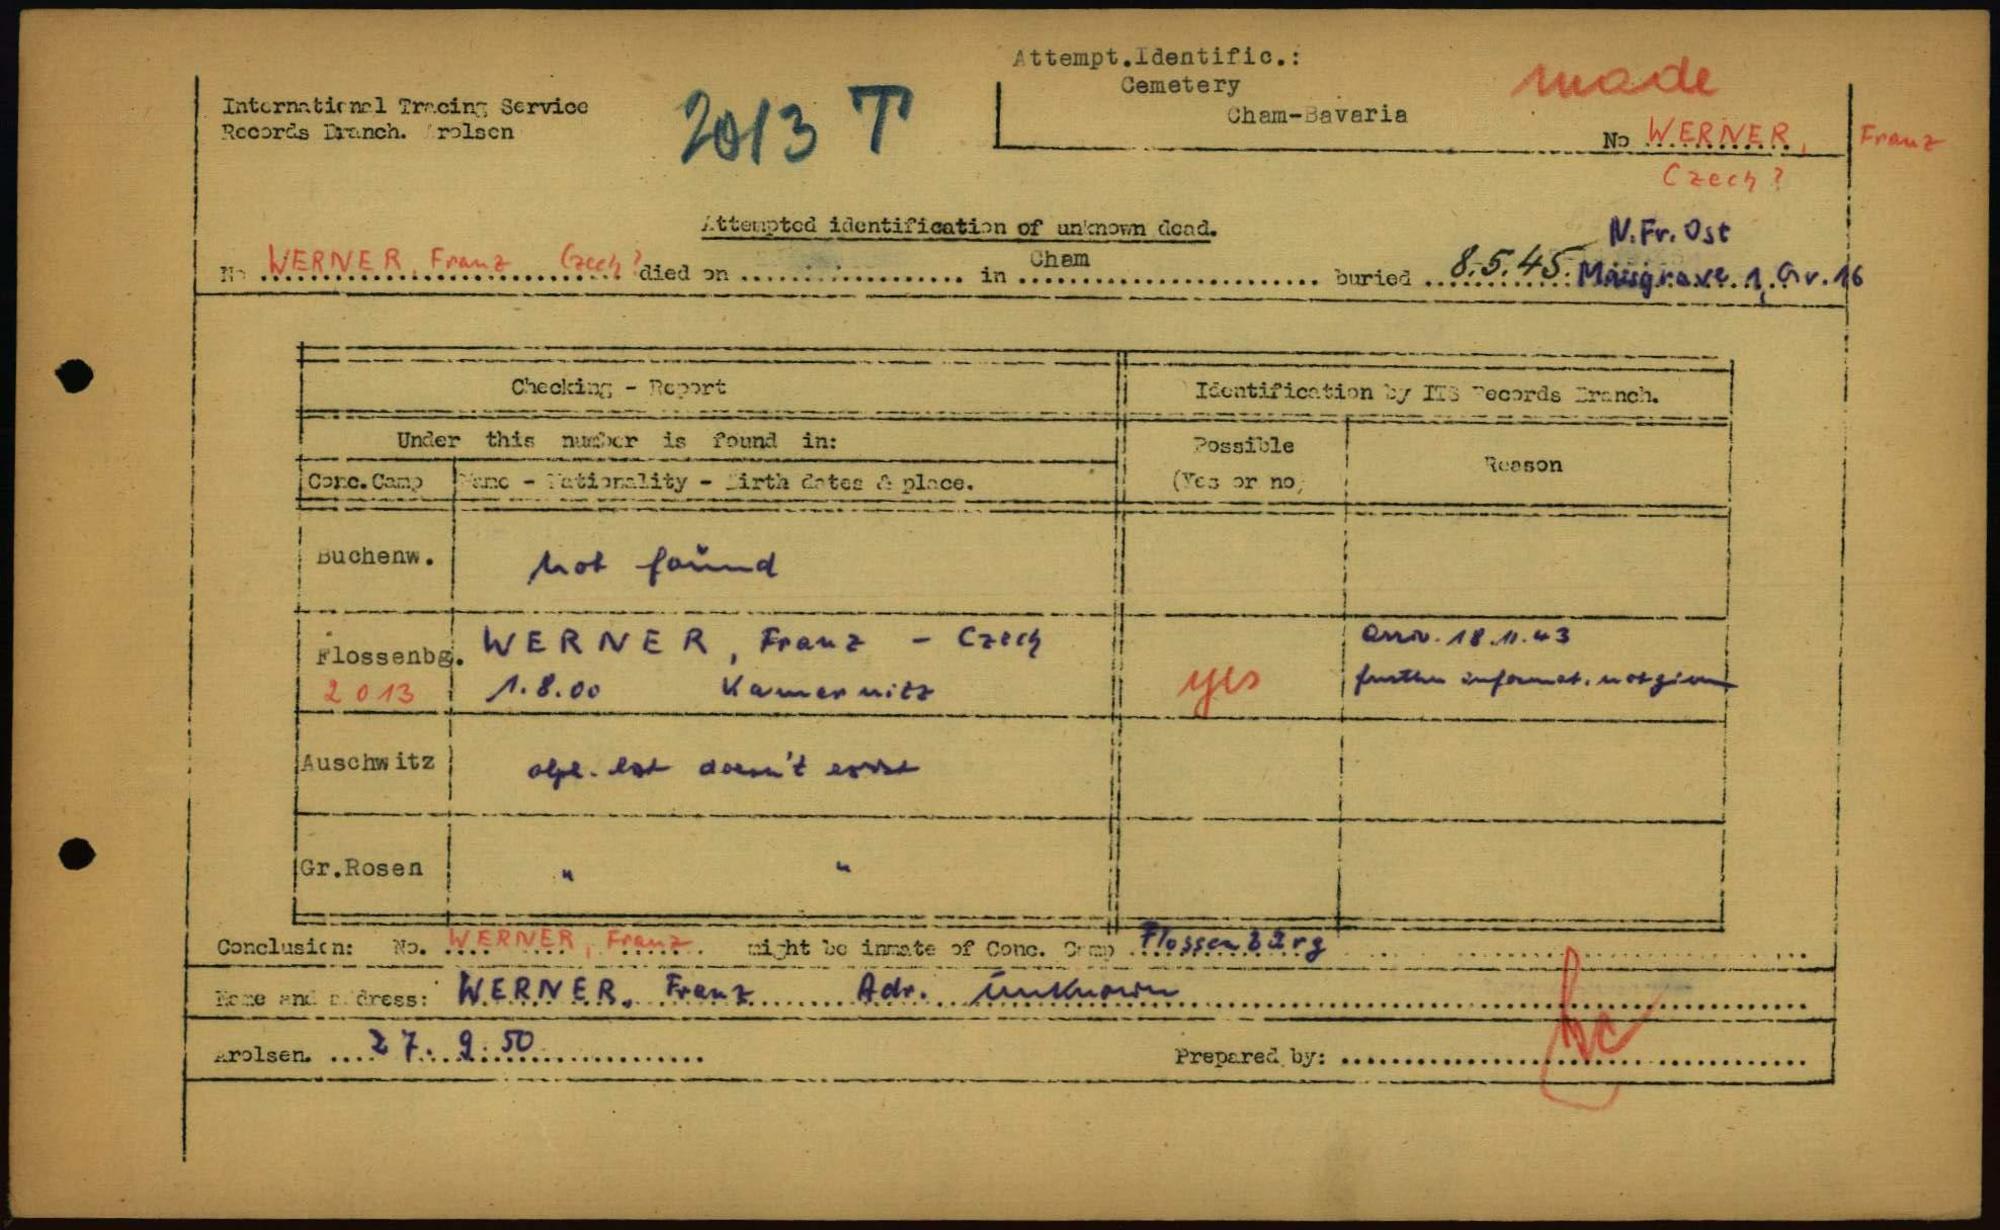 Attempt.Identific.:
Cemetery
Cham-Bavaria
made
International Tracing Service
Records Branch. Arolsen
2013 T
No WERNER, Franz
Czech?
Attempted identification of unknown dead.
N.Fr.Ost
No WERNER, Franz Czech? died on .................. in Cham buried 8.5.45. Massgrave 1, Gr. 16
Checking - Report
Identification by ITS Records Branch.
Under this number is found in:
Possible
(Yes or no)
Reason
Conc.Camp
Name - Nationality - Birth dates & place.
Buchenw.
not found
Flossenbg.
2013
WERNER, Franz - Czech
1.8.00 Kamernitz
yes
arriv. 18.11.43
further informat. not given
Auschwitz
alph. list doesn't exist
Gr.Rosen
" "
Conclusion: No. WERNER, Franz. might be inmate of Conc. Camp Flossenbürg
Name and address: WERNER, Franz Adr. unknown
Arolsen. 27. 9. 50
Prepared by: